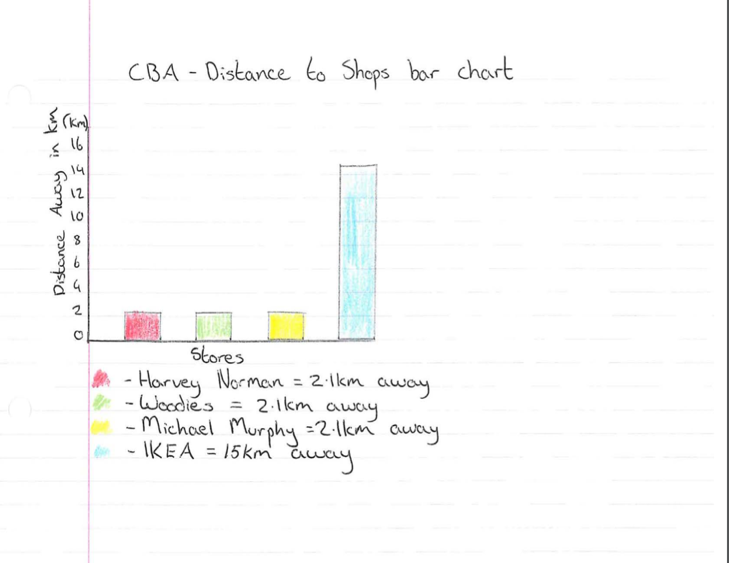 CBA - Distance to Shops bar chart
Distance Away in km (km)
16
14
12
10
8
6
4
2
0
Stores
- Harvey Norman = 2.1km away
- Woodies = 2.1km away
- Michael Murphy = 2.1km away
- IKEA = 15km away